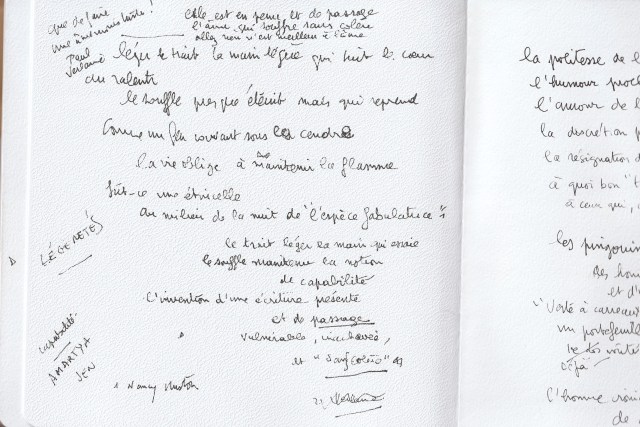 que de faire
une âme moins triste!
Paul
Verlaine
elle est en peine et de passage
l'âme qui souffre sans colère
allez rien n'est meilleur à l'âme
léger le trait la main légère qui suit le cœur
au ralenti
le souffle presque éteint mais qui reprend
comme un feu couvant sous la cendre
la vie oblige à maintenir la flamme
fût-ce une étincelle
au milieu de la nuit de "l'espèce fabulatrice"
le trait léger la main qui essaie
le souffle maintenu la notion
de capabilité
l'invention d'une écriture présente
et de passage
vulnérable,
et "sans colère"
Verlaine
Nancy Huston
LÉGERETÉS
capabilité
AMARTYA
SEN
la politesse de l
l'humour proc
l'amour de l
la discrétion p
la résignation d
à quoi bon "t
à ceux qui,
les pingouins
des hom
et d'
"Voté à carreaux
un portefeuille
le dos voûté
déjà
l'homme
de